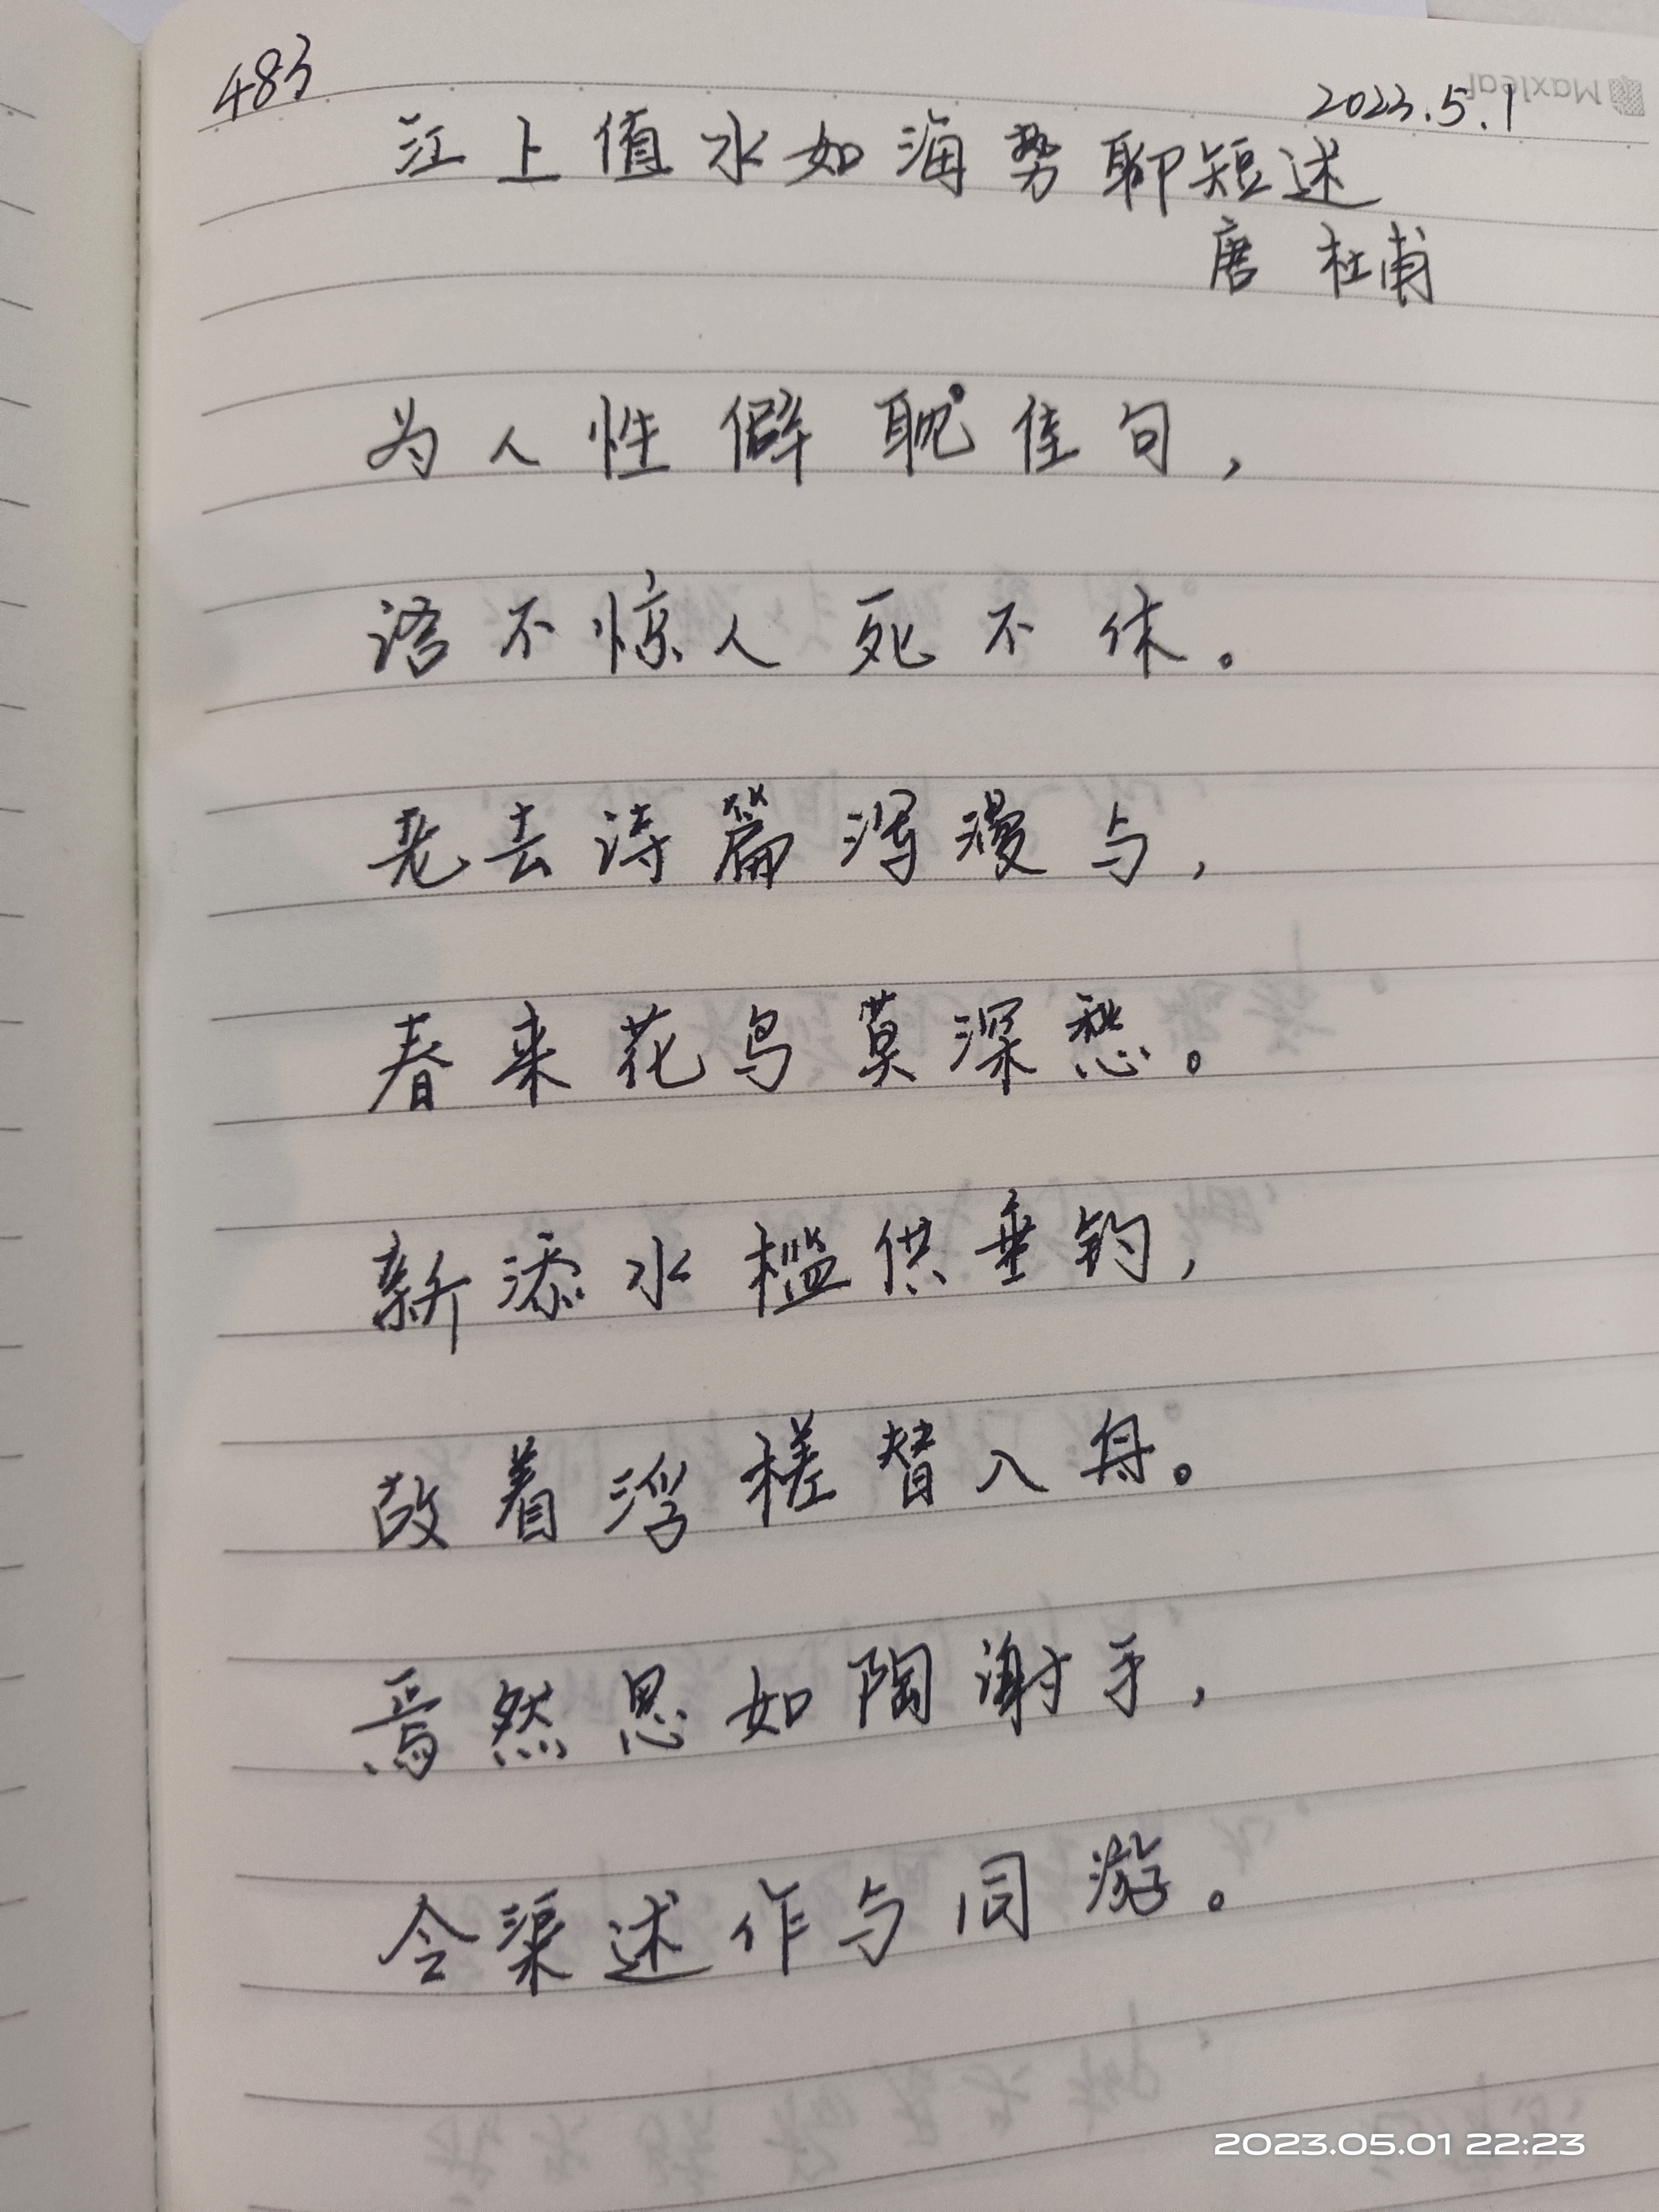 483
Maxleaf
2023.5.1
江上值水如海势聊短述
唐 杜甫
为人性僻耽佳句，
语不惊人死不休。
老去诗篇浑漫与，
春来花鸟莫深愁。
新添水槛供垂钓，
故着浮槎替入舟。
焉然思如陶谢手，
令渠述作与同游。
2023.05.01 22:23